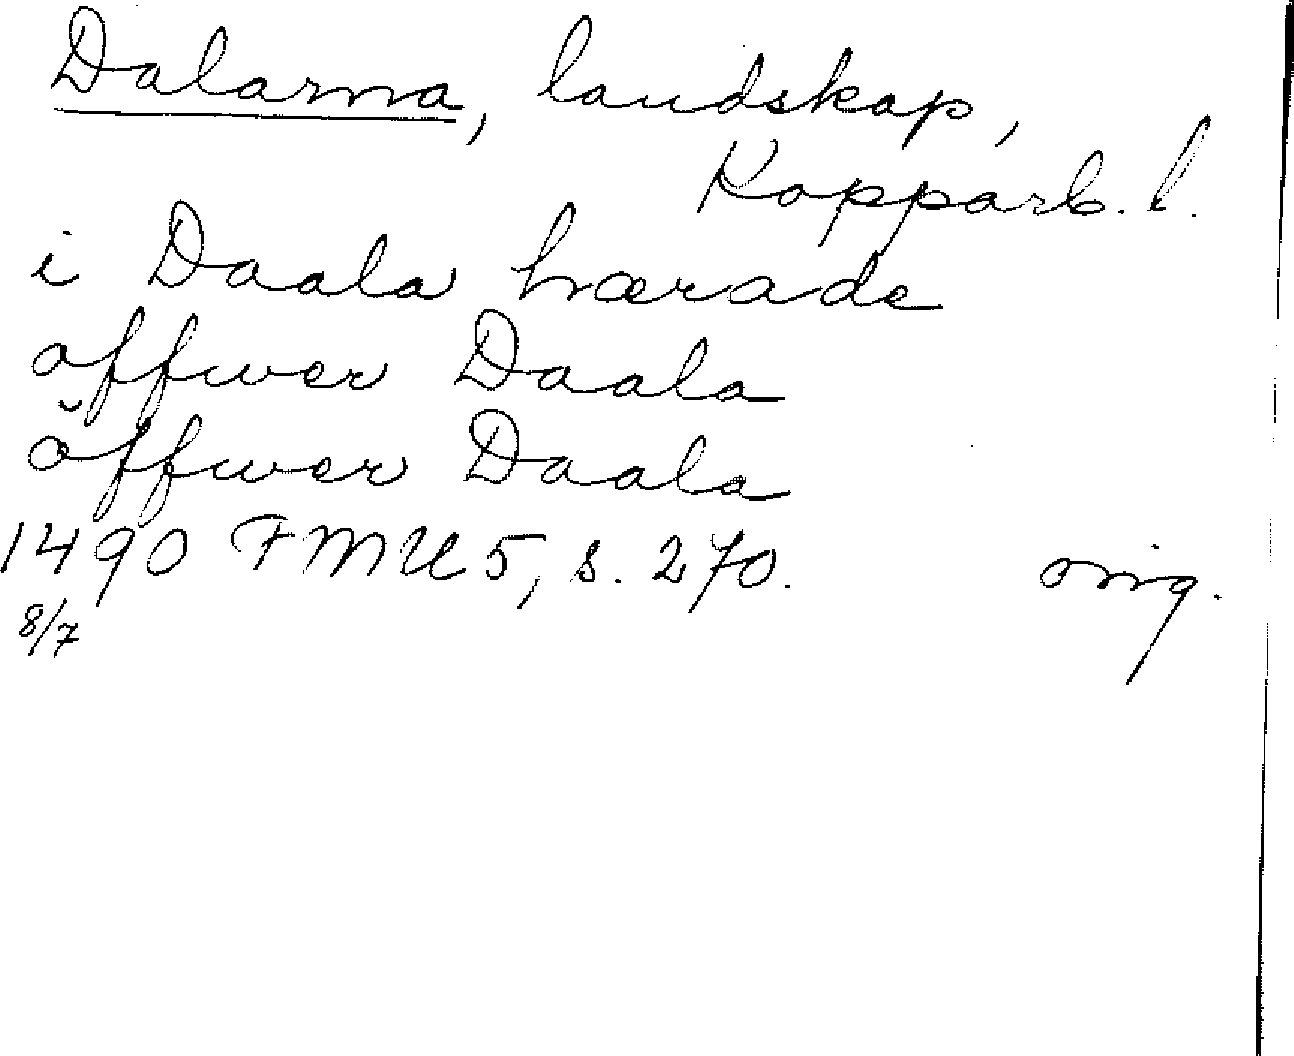 Dalarna, landskap,
Kopparb. l.
i Daala hærade
offwer Daala
öffwer Daala
1490 FMU 5, s. 270. orig.
8/7